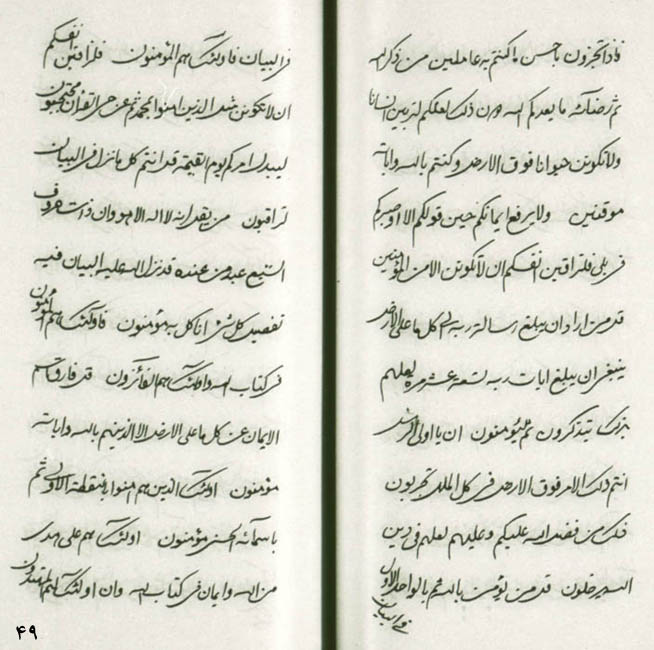 فاذا تجزون باحسن ما کنتم به عاملین من ذکر الله
ثم رضائه ما یعدکم الله من ذلک لعلکم لتربین انسانا
ولا تکونن حیوانا فوق الارض وکنتم بالله وایاته
موقنین ولا یرفع ایمانکم حین قولکم الا
قل بلی فلتراقبن انفسکم ان لا تکونن الا من المؤمنین
قد من اراد ان یبلغ رسالة ربه الی کل ما علی الارض
ینبغی ان یبلغ ایات ربه تسعة عشر مرة لعلهم
بذلک یتذکرون ثم لیؤمنون ان یا اولی
انتم ذلک الامر فوق الارض فی کل الملل تجریون
ذلک من فضل الله علیکم وعلیهم لعلهم فی دین
الله یدخلون قد من یؤمن بالله ثم بالواحد الاول
فی البیان
فی البیان فاولئک هم المؤمنون فلتراقبن انفسکم
ان لا تکونن مثل الذین امنوا بمحمد ثم عن حق القران محتجبون
لیبدل امرکم یوم القیمة قد انتم کل ما نزل فی البیان
لتراقبون من یقدر انه لا اله الا هو وان ذات حروف
السبع عبد من عنده قد نزل الله علیه البیان فیه
تفصیل کل شئ انا کل به مؤمنون فاولئک هم المؤمنون
فی کتاب الله واولئک هم الفائزون قد فارق اسم
الایمان عن کل ما علی الارض الا الذینهم بالله وایاته
مؤمنون اولئک الذین هم امنوا بنقطة الاولی ثم
باسمائه الحسنی مؤمنون اولئک هم علی هدی
من الله وایمان فی کتاب الله وان اولئک هم المهتدون
۴۹